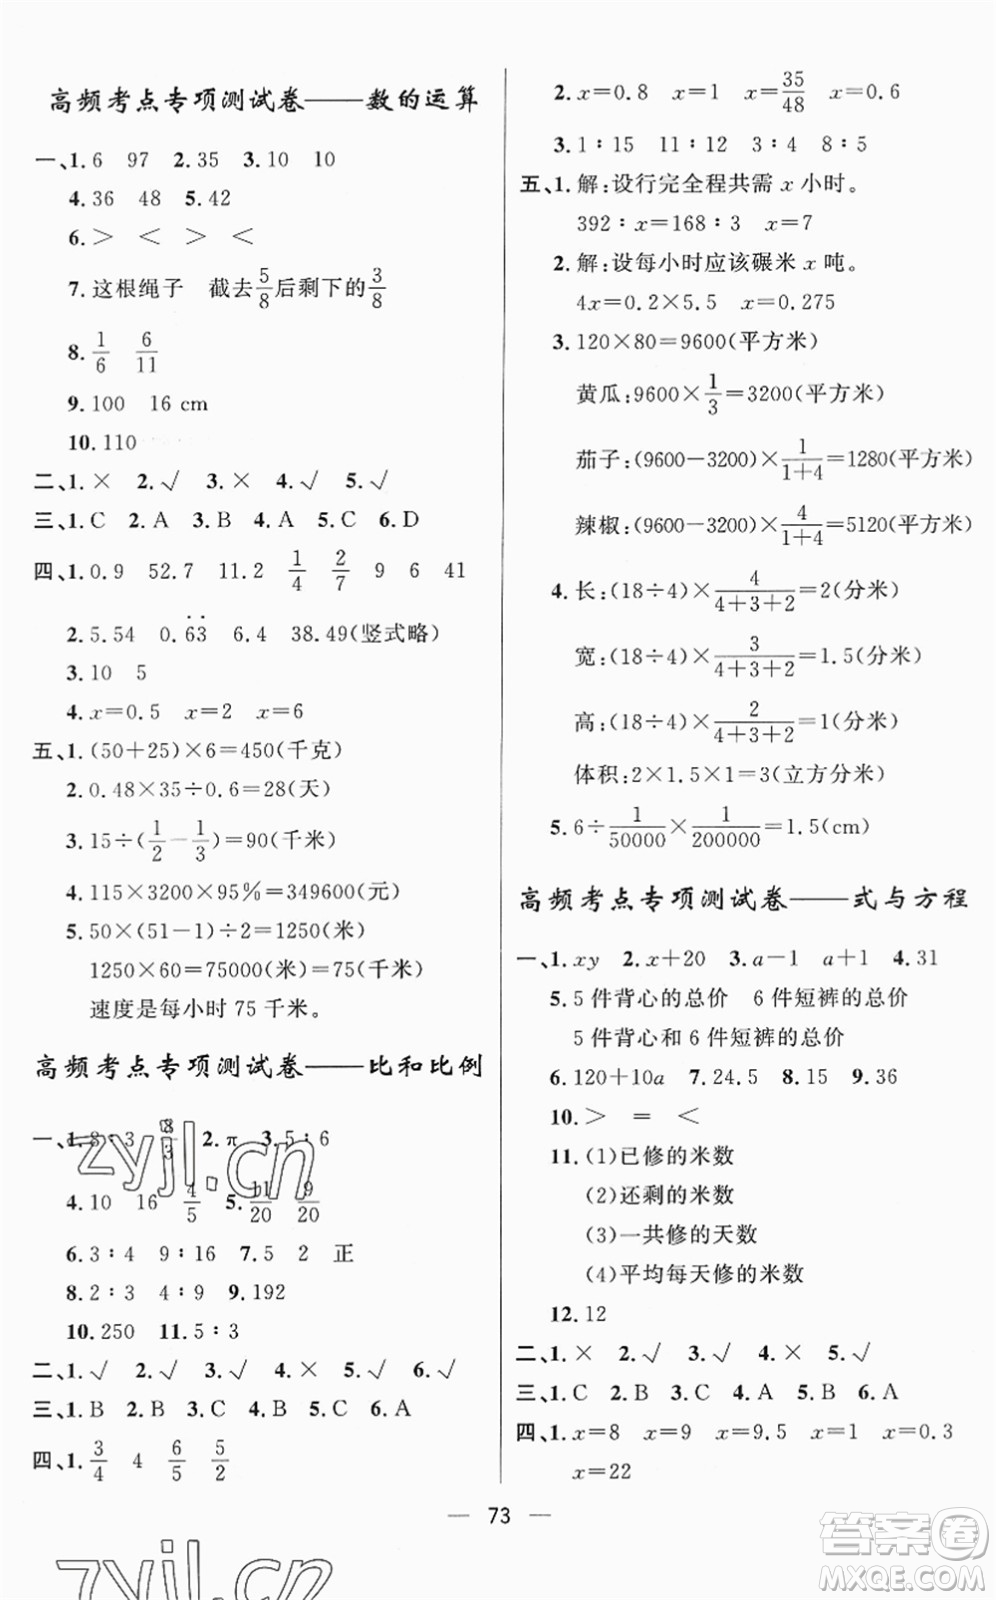 高频考点专项测试卷——数的运算
一、1.6 97 2.35 3.10 10
4.36 48 5.42
6.> < > <
7.这根绳子 截去5/8后剩下的3/8
8.1/6 6/11
9.100 16 cm
10.110
二、1.× 2.√ 3.× 4.√ 5.√
三、1.C 2.A 3.B 4.A 5.C 6.D
四、1.0.9 52.7 11.2 1/4 2/7 9 6 41
2.5.54 0.6̇3̇ 6.4 38.49(竖式略)
3.10 5
4.x=0.5 x=2 x=6
五、1.(50+25)×6=450(千克)
2.0.48×35÷0.6=28(天)
3.15÷(1/2-1/3)=90(千米)
4.115×3200×95%=349600(元)
5.50×(51-1)÷2=1250(米)
1250×60=75000(米)=75(千米)
速度是每小时75千米。
高频考点专项测试卷——比和比例
一、1.8∶3 8/3 2.π 3.5∶6
4.10 16 4/5 5.11/20 9/20
6.3∶4 9∶16 7.5 2 正
8.2∶3 4∶9 9.192
10.250 11.5∶3
二、1.√ 2.√ 3.√ 4.× 5.√ 6.√
三、1.B 2.B 3.C 4.B 5.B 6.A
四、1.3/4 4 6/5 5/2
2.x=0.8 x=1 x=35/48 x=0.6
3.1∶15 11∶12 3∶4 8∶5
五、1.解:设行完全程共需x小时。
392∶x=168∶3 x=7
2.解:设每小时应该碾米x吨。
4x=0.2×5.5 x=0.275
3.120×80=9600(平方米)
黄瓜:9600×1/3=3200(平方米)
茄子:(9600-3200)×1/(1+4)=1280(平方米)
辣椒:(9600-3200)×4/(1+4)=5120(平方米)
4.长:(18÷4)×4/(4+3+2)=2(分米)
宽:(18÷4)×3/(4+3+2)=1.5(分米)
高:(18÷4)×2/(4+3+2)=1(分米)
体积:2×1.5×1=3(立方分米)
5.6÷1/50000×1/200000=1.5(cm)
高频考点专项测试卷——式与方程
一、1.xy 2.x+20 3.a-1 a+1 4.31
5.5件背心的总价 6件短裤的总价
5件背心和6件短裤的总价
6.120+10a 7.24.5 8.15 9.36
10.> = <
11.(1)已修的米数
(2)还剩的米数
(3)一共修的天数
(4)平均每天修的米数
12.12
二、1.× 2.√ 3.√ 4.× 5.√
三、1.C 2.B 3.C 4.A 5.B 6.A
四、1.x=8 x=9 x=9.5 x=1 x=0.3
x=22
— 73 —
zyjl.cn
zyjl.cn
答案圈
MXQE.COM